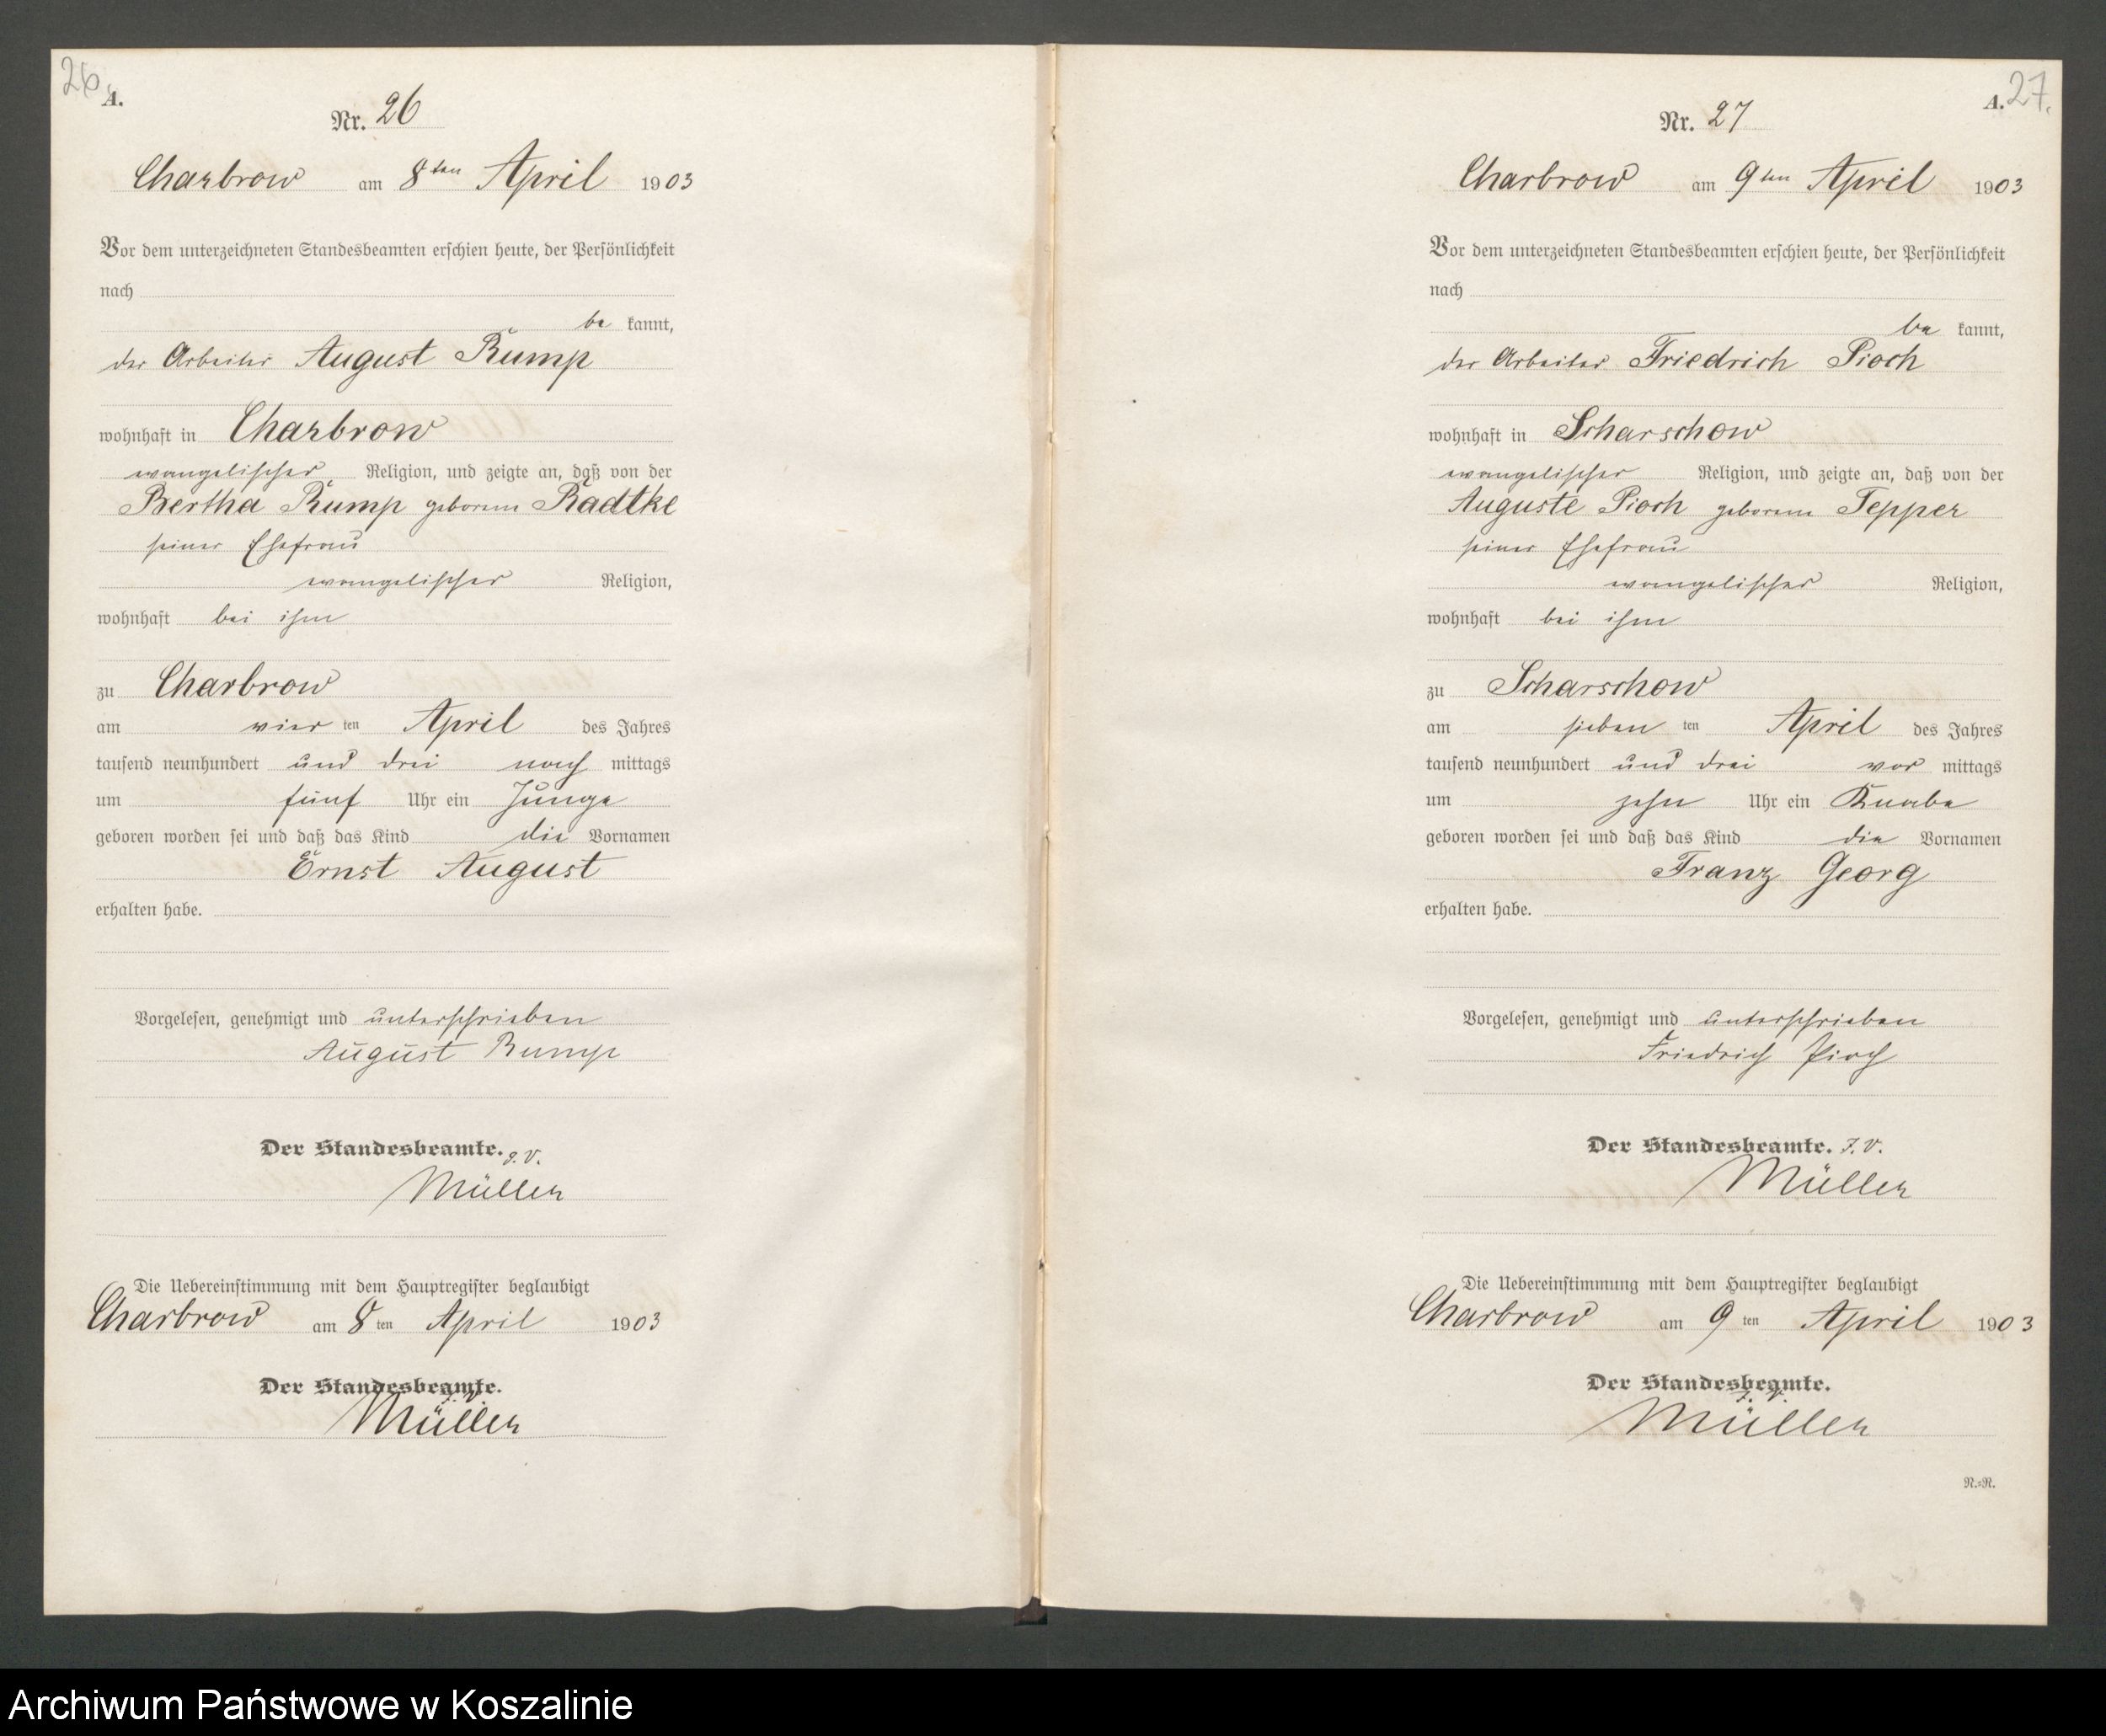 26.
A.
Nr. 26
Charbrow am 8ten April 1903
Vor dem unterzeichneten Standesbeamten erschien heute, der Persönlichkeit
nach
be kannt,
der Arbeiter August Rump
wohnhaft in Charbrow
evangelischer Religion, und zeigte an, daß von der
Bertha Rump geborene Radtke
seiner Ehefrau
evangelischer Religion,
wohnhaft bei ihm
zu Charbrow
am vier ten April des Jahres
tausend neunhundert und drei nach mittags
um fünf Uhr ein Junge
geboren worden sei und daß das Kind die Vornamen
Ernst August
erhalten habe.
Vorgelesen, genehmigt und unterschrieben
August Rump
Der Standesbeamte. J. V.
Müller
Die Uebereinstimmung mit dem Hauptregister beglaubigt
Charbrow am 8 ten April 1903
Der Standesbeamte.
J. V.
Müller
A. 27.
Nr. 27
Charbrow am 9ten April 1903
Vor dem unterzeichneten Standesbeamten erschien heute, der Persönlichkeit
nach
be kannt,
der Arbeiter Friedrich Pioch
wohnhaft in Scharschow
evangelischer Religion, und zeigte an, daß von der
Auguste Pioch geborene Tepper
seiner Ehefrau
evangelischer Religion,
wohnhaft bei ihm
zu Scharschow
am sieben ten April des Jahres
tausend neunhundert und drei vor mittags
um zehn Uhr ein Knabe
geboren worden sei und daß das Kind die Vornamen
Franz Georg
erhalten habe.
Vorgelesen, genehmigt und unterschrieben
Friedrich Pioch
Der Standesbeamte. J. V.
Müller
Die Uebereinstimmung mit dem Hauptregister beglaubigt
Charbrow am 9 ten April 1903
Der Standesbeamte.
J. V.
Müller
R.=R.
Archiwum Państwowe w Koszalinie